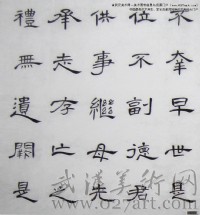 不幸早世是
位不副德君
供事繼母先
承志存亡之
禮無遺闕是
武漢美術网
www.027art.com